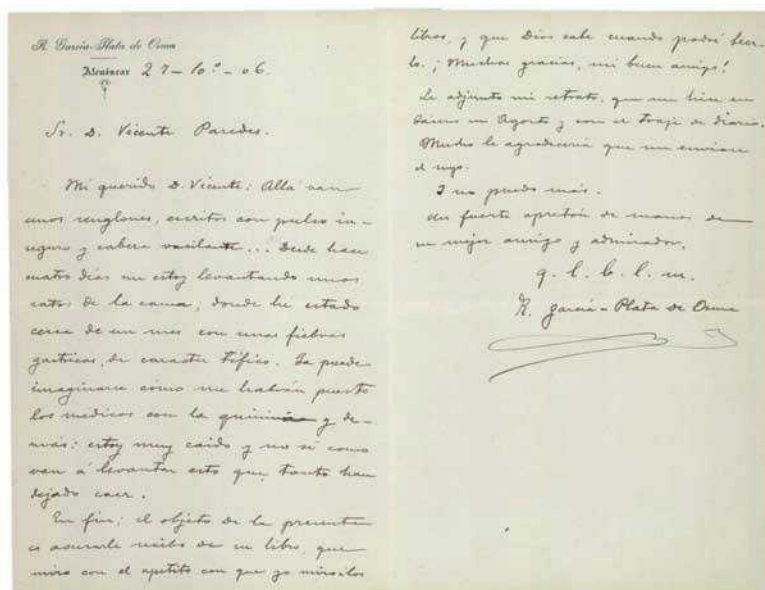 R. García-Plata de Osma
Alcuéscar 27-10º-06.
Sr. D. Vicente Paredes.
Mi querido D. Vicente: Allá van
unos renglones, escritos con pulso in-
seguro y cabeza vacilante... Desde hace
cuatro días me estoy levantando unos
ratos de la cama, donde he estado
cerca de un mes con unas fiebres
gástricas, de caracter tífico. Ya puede
imaginarse cómo me habrán puesto
los medicos con la quinina y de-
más: estoy muy caido y no sé como
van á levantar esto que tanto han
dejado caer.
En fin: el objeto de la presente
es acusarle recibo de su libro, que
miro con el apetito con que yo miro los
libros, y que Dios sabe cuando podré leer-
lo. ¡Muchas gracias, mi buen amigo!
Le adjunto mi retrato, que me hice en
en Agosto y con el traje de diario.
Mucho le agradeceria que me enviase
el suyo.
Y no puedo más.
Un fuerte apretón de manos de
su mejor amigo y admirador,
q. l. b. l. m.
R. García-Plata de Osma